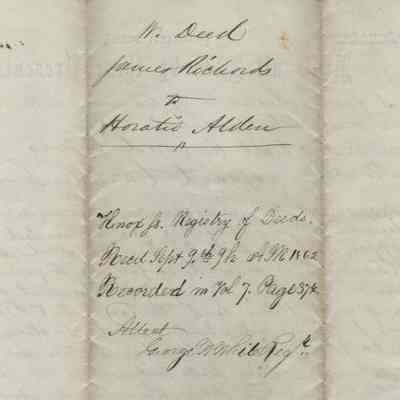 W. Deed
James Richards
to
Horatio Alden
Knox ss. Registry of Deeds.
Recd Sept 9th 9h A M 1862
Recorded in Vol 7. Page 372
Attest
George W White Regr.